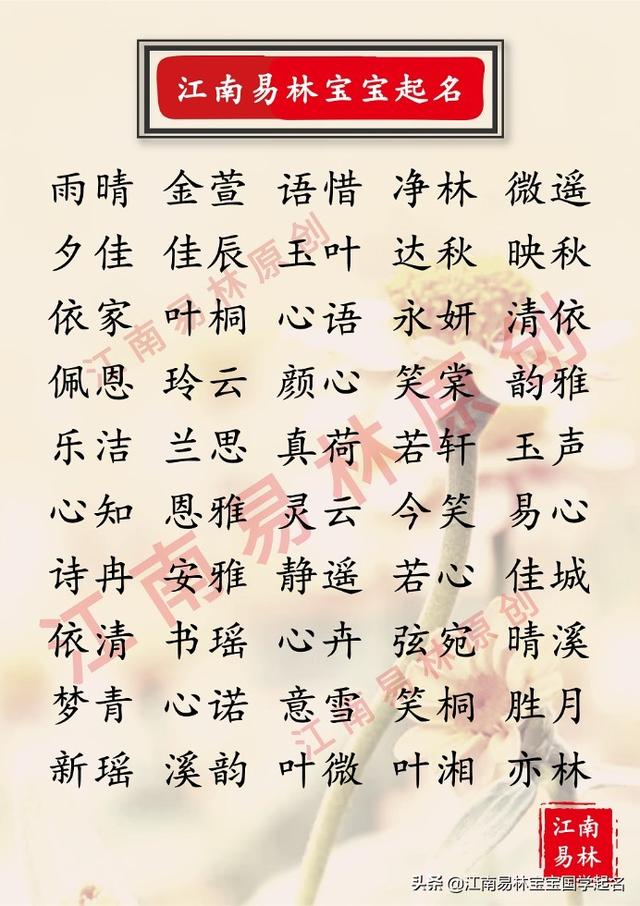 江南易林宝宝起名
雨晴 金萱 语惜 净林 微遥
夕佳 佳辰 玉叶 达秋 映秋
依家 叶桐 心语 永妍 清依
佩恩 玲云 颜心 笑棠 韵雅
乐洁 兰思 真荷 若轩 玉声
心知 恩雅 灵云 今笑 易心
诗冉 安雅 静遥 若心 佳城
依清 书瑶 心卉 弦宛 晴溪
梦青 心诺 意雪 笑桐 胜月
新瑶 溪韵 叶微 叶湘 亦林
江南易林原创
江南易林原创
江南易林原创
江南
易林
头条 @江南易林宝宝国学起名